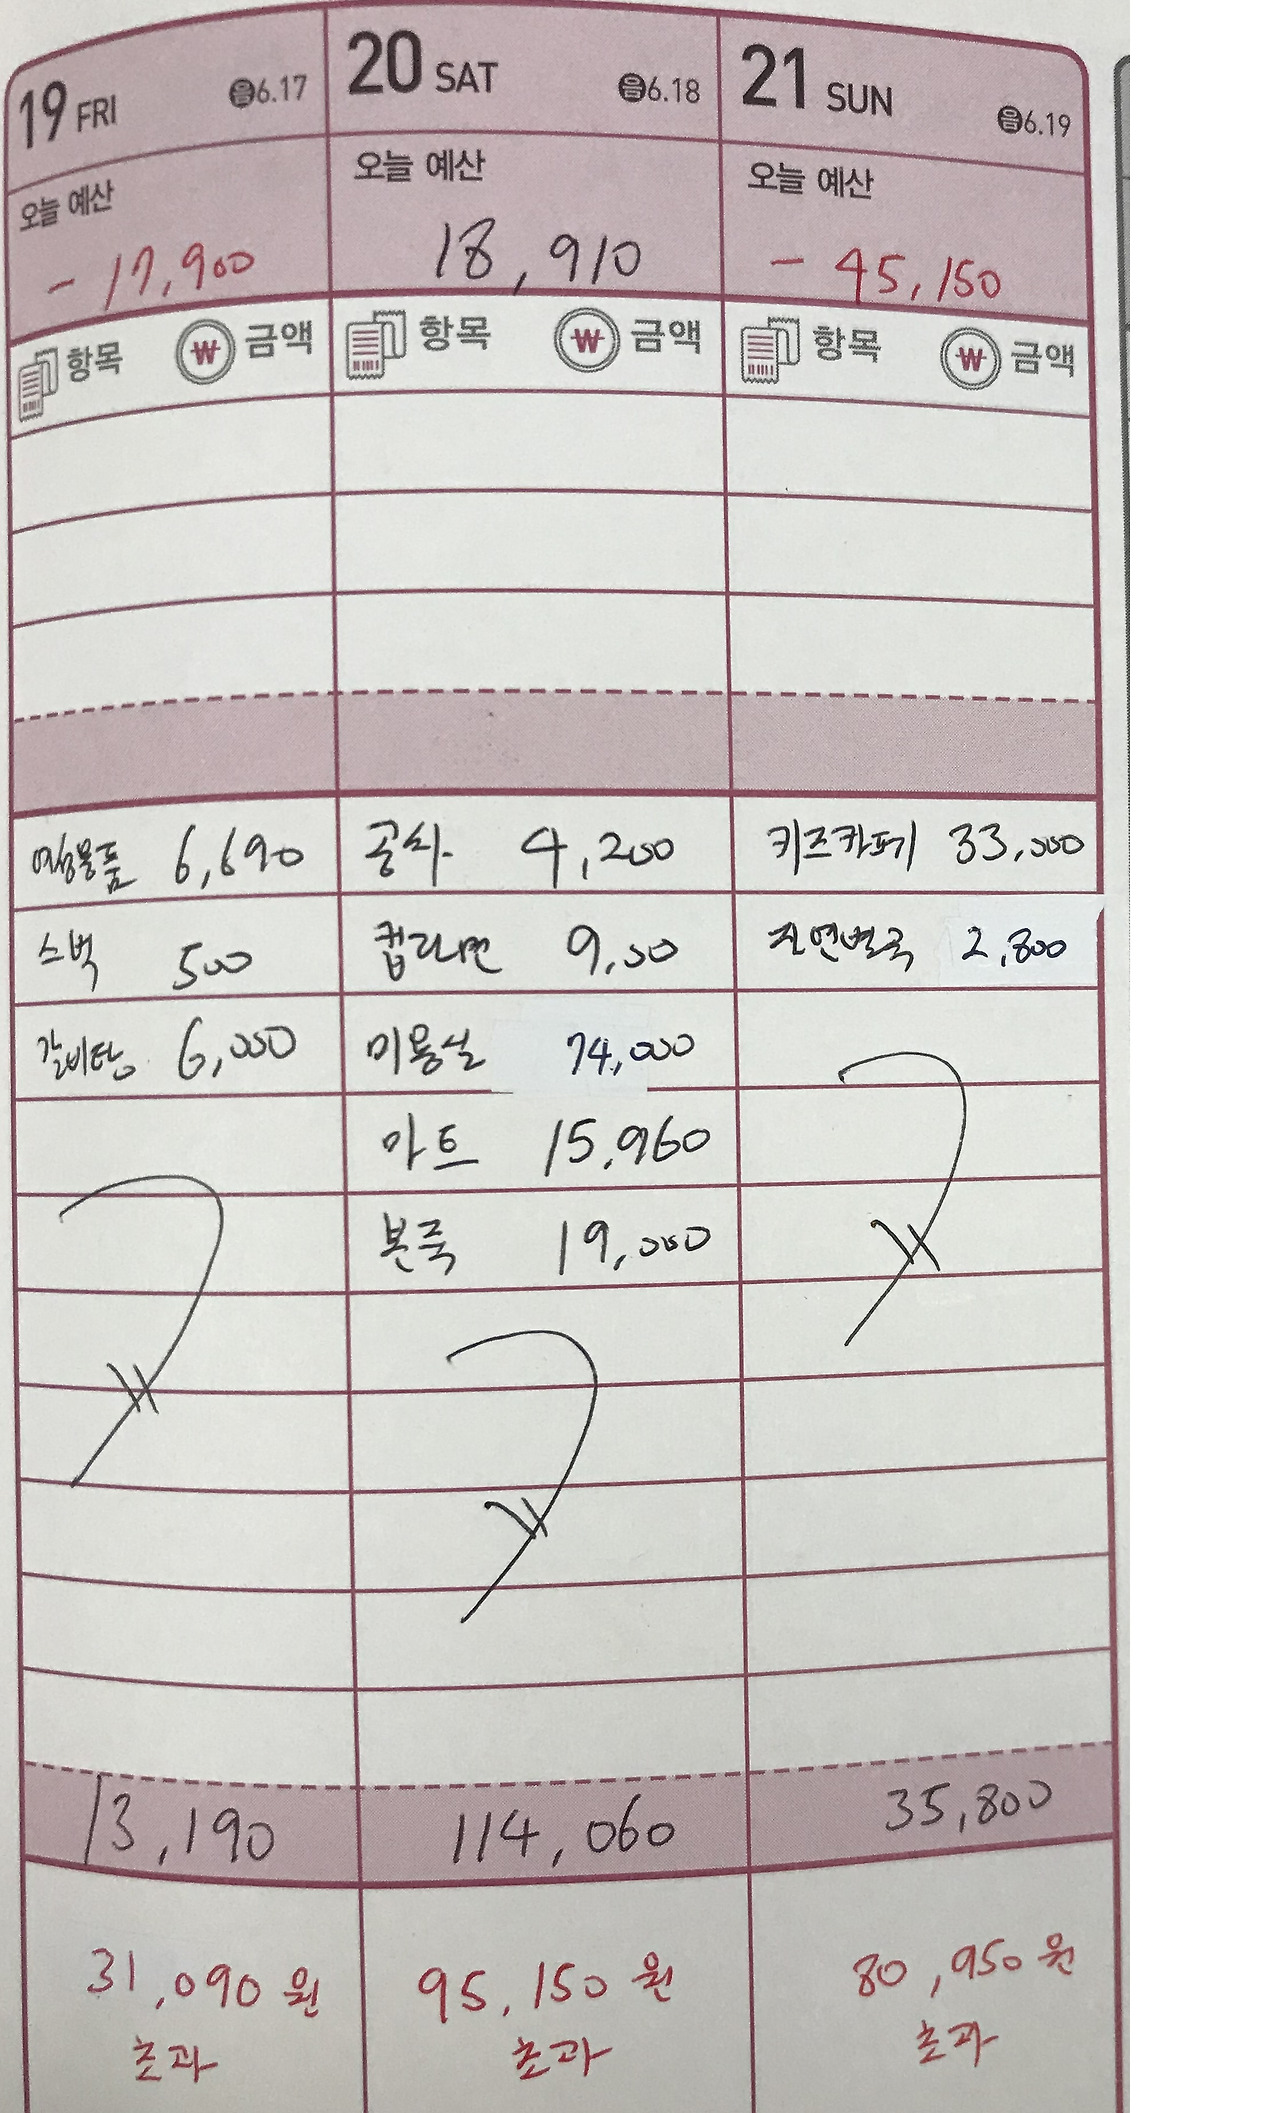 19 FRI 음6.17
오늘 예산
- 17,900
항목 ₩ 금액
여성용품 6,690
스벅 500
갈비탕 6,000
13,190
31,090원
초과
20 SAT 음6.18
오늘 예산
18,910
항목 ₩ 금액
공차 4,200
컵라면 9,00
미용실 74,000
마트 15,960
본죽 19,000
114,060
95,150원
초과
21 SUN 음6.19
오늘 예산
- 45,150
항목 ₩ 금액
키즈카페 33,000
자연별곡 2,800
35,800
80,950원
초과